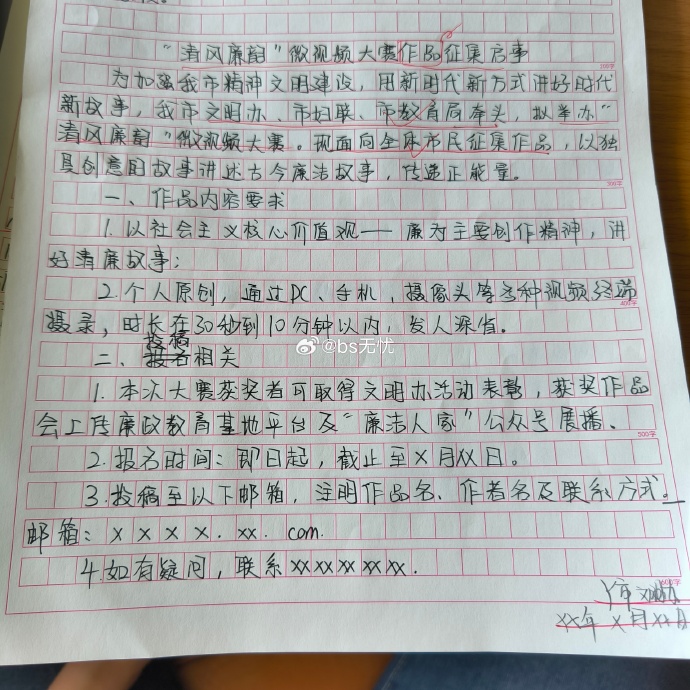 “清风廉韵”微视频大赛作品征集启事
100字
为加强我市精神文明建设，用新时代新方式讲好时代
新故事，我市文明办、市妇联、市教育局牵头，拟举办“
清风廉韵”微视频大赛。现面向全体市民征集作品，以独
具创意的故事讲述古今廉洁故事，传递正能量。
300字
一、作品内容要求
1.以社会主义核心价值观——廉为主要创作精神，讲
好清廉故事；
2.个人原创，通过PC、手机，摄像头等各种视频终端
400字
摄录，时长在30秒到10分钟以内，发人深省。
投稿
二、报名相关
@bs无忧
1.本次大赛获奖者可取得文明办活动表彰，获奖作品
会上传廉政教育基地平台及“廉洁人家”公众号展播、
500字
2.报名时间：即日起，截止至X月XX日。
3.投稿至以下邮箱，注明作品名、作者名及联系方式。
邮箱：x x x x . xx . com.
4.如有疑问，联系xxxxxxx.
600字
市文明办
xx年 x月xx日